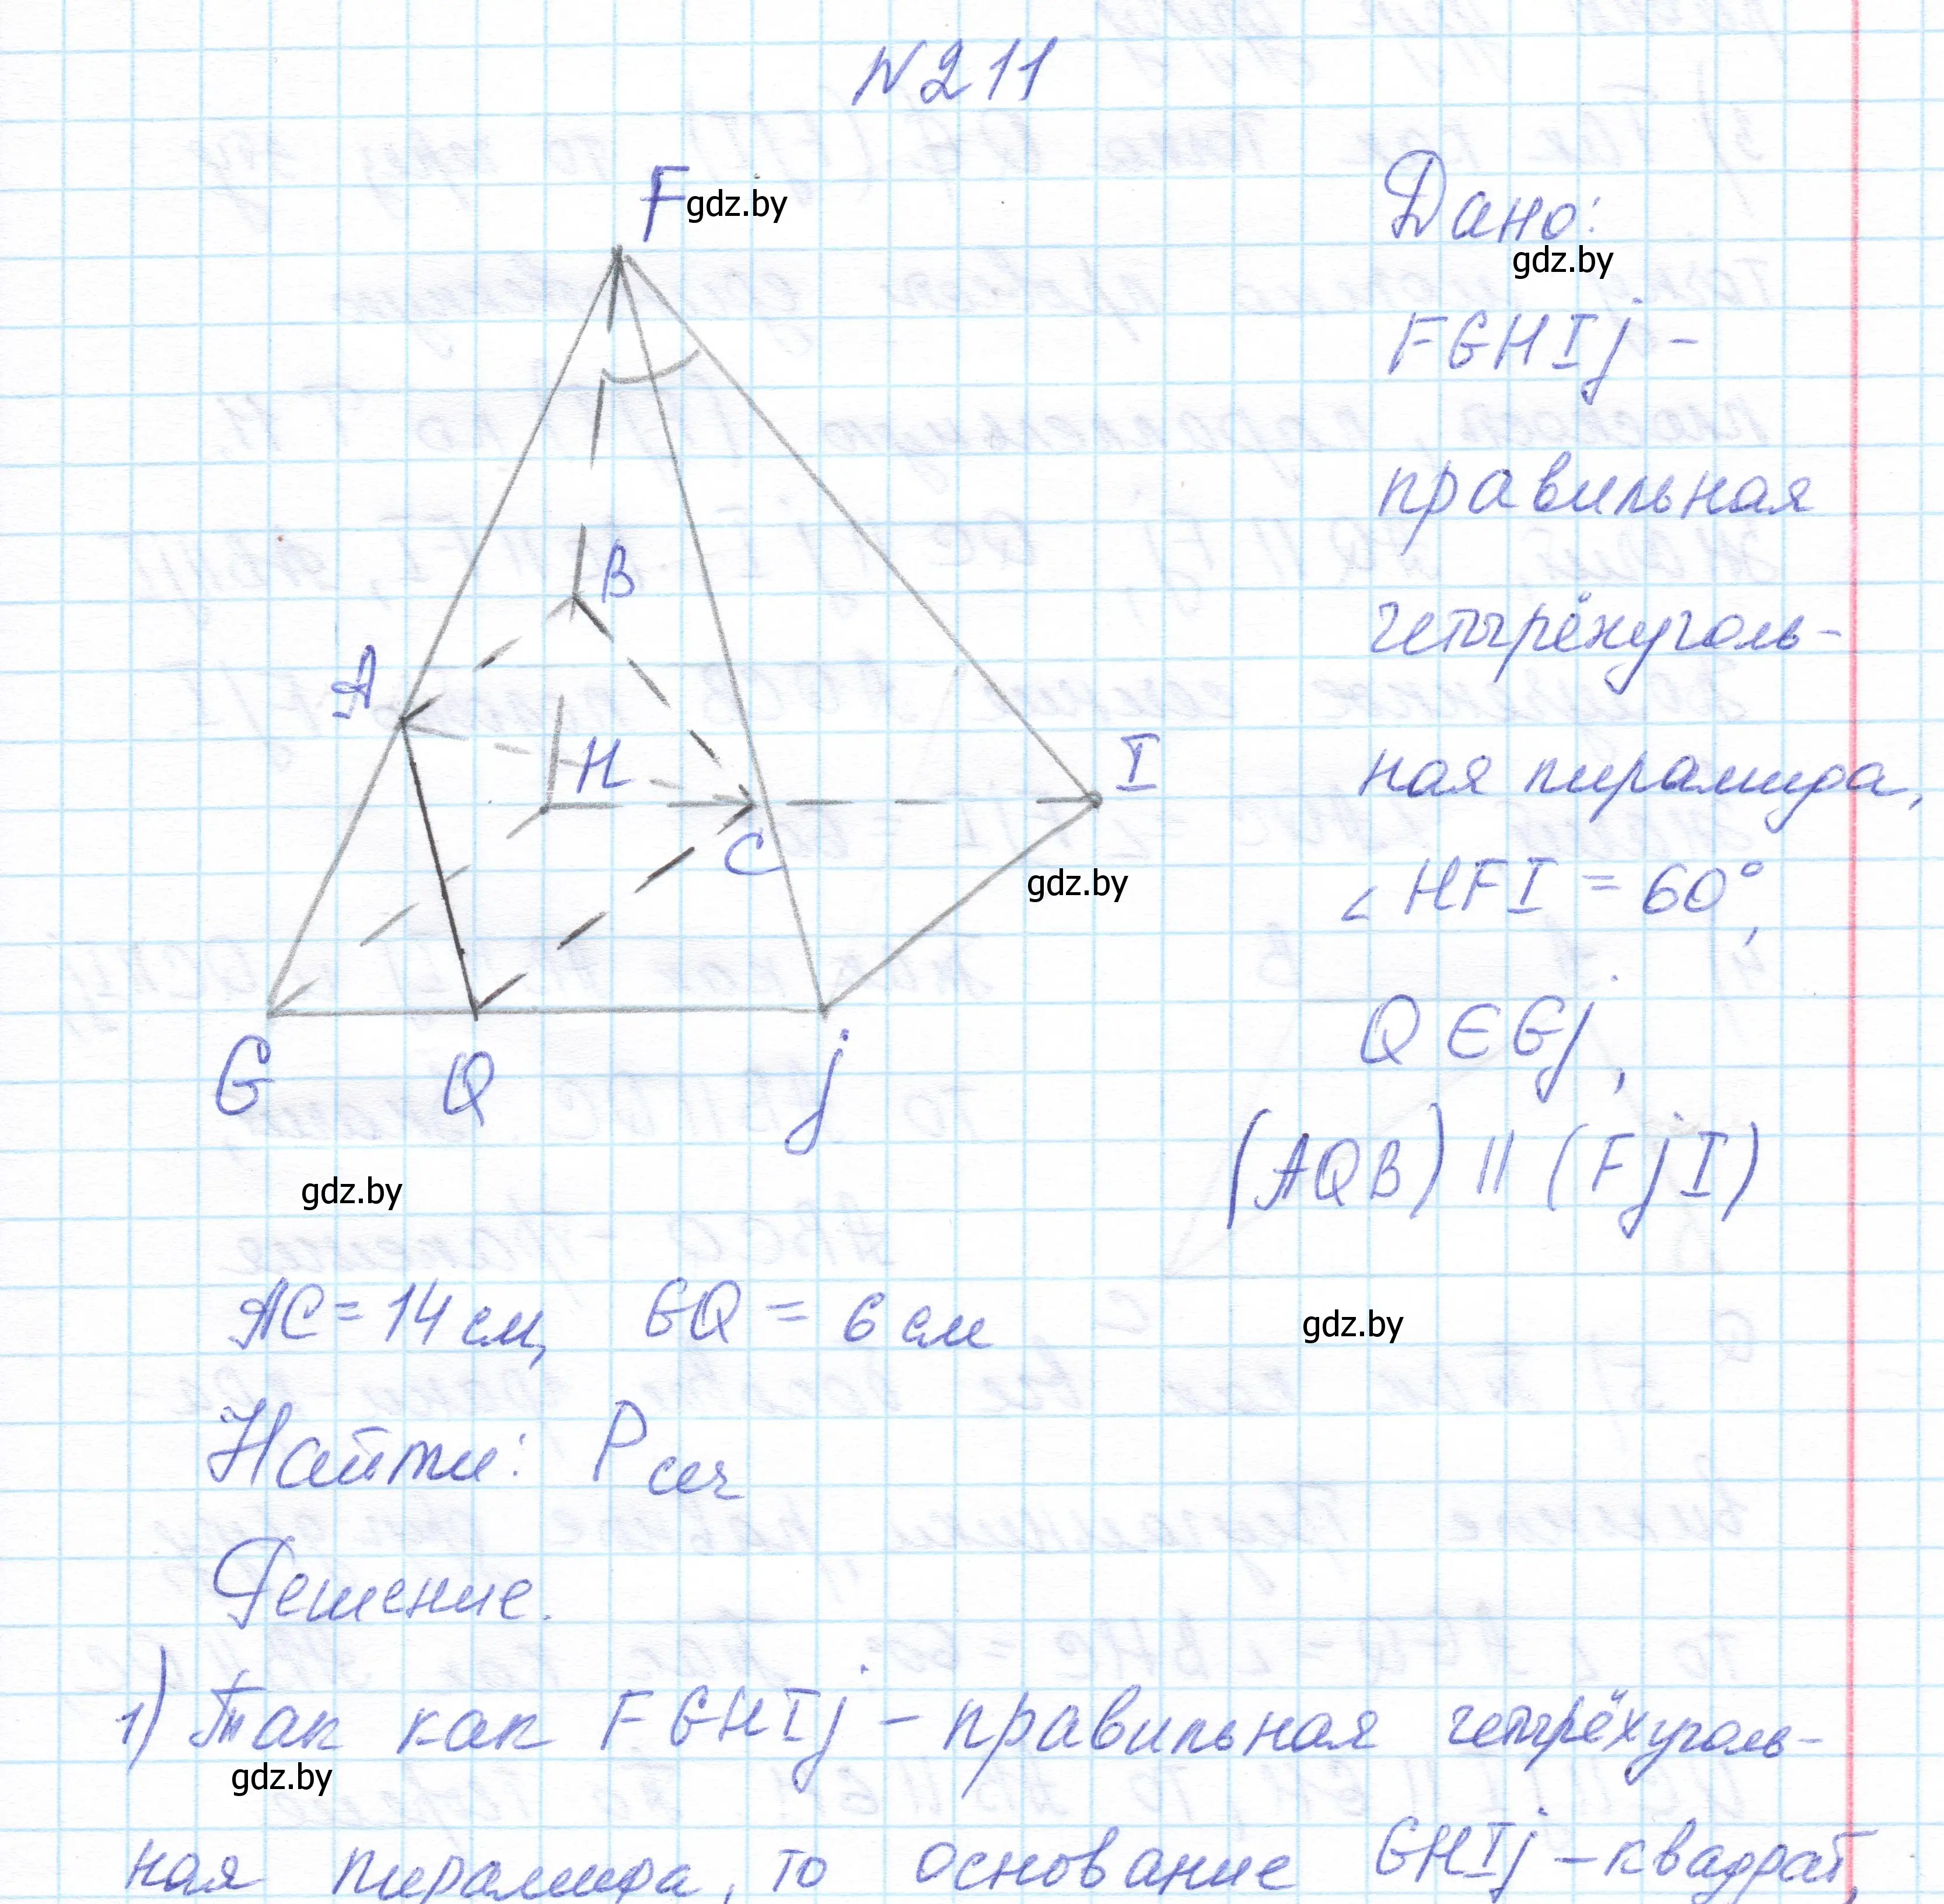 N211
F
gdz.by
B
A
H
I
C
gdz.by
G
Q
j
gdz.by
Дано:
gdz.by
FGHIj –
правильная
четырёхуголь-
ная пирамида,
∠HFI = 60°,
Q ∈ Gj,
(AQB) || (FjI)
AC = 14 см, GQ = 6 см
gdz.by
Найти: Pсеч
Решение.
1) Так как FGHIj – правильная четырёхуголь-
gdz.by
ная пирамида, то основание GHIj – квадрат,